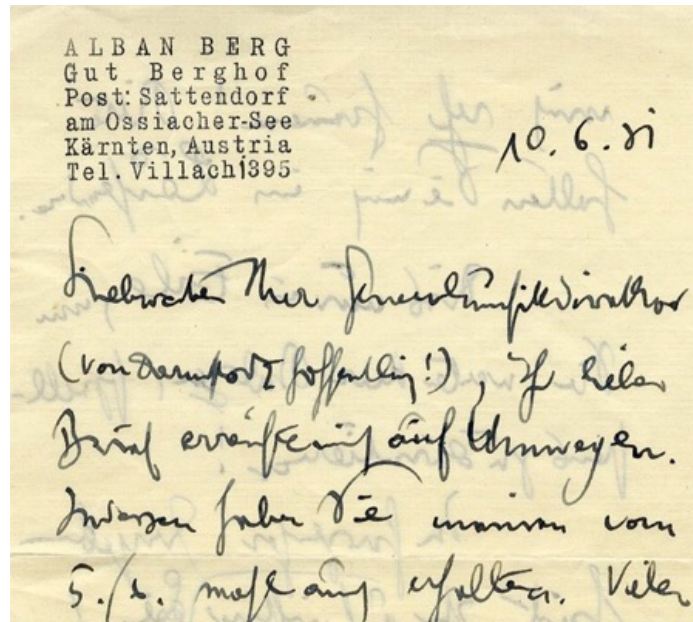 ALBAN BERG
Gut Berghof
Post: Sattendorf
am Ossiacher-See
Kärnten, Austria
Tel. Villach 1395
10.6.31
Herr Generalmusikdirektor
(von Darmstadt hoffentlich!), Ihr lieber
Brief erreichte mich auf Umwegen.
Indessen haben Sie meinen vom
5./6. wohl auch erhalten. Vielen